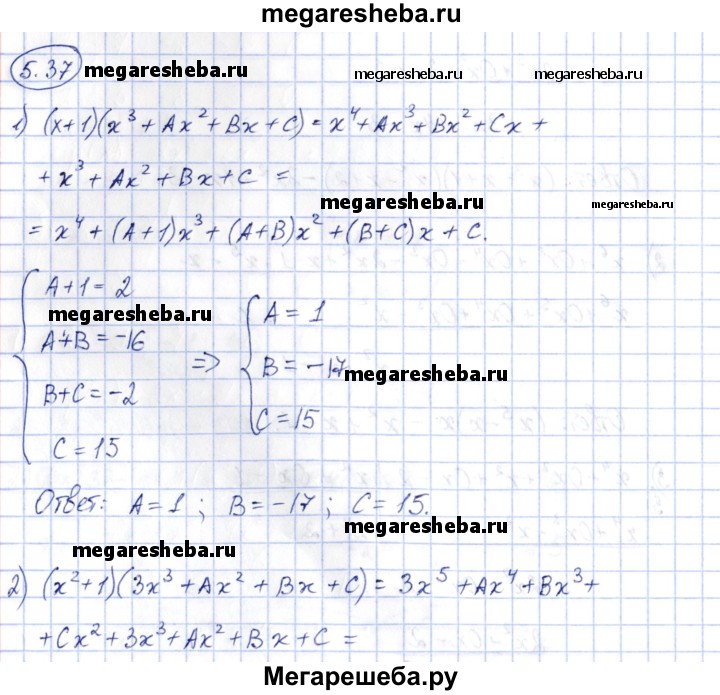 megaresheba.ru
5.37 megaresheba.ru megaresheba.ru megaresheba.ru
1) (x+1)(x³ + Ax² + Bx + C) = x⁴ + Ax³ + Bx² + Cx +
+ x³ + Ax² + Bx + C =
megaresheba.ru megaresheba.ru
= x⁴ + (A+1)x³ + (A+B)x² + (B+C)x + C.
A+1 = 2
megaresheba.ru
A = 1
A+B = -16
=>
B = -17
megaresheba.ru
B+C = -2
C = 15
C = 15
Ответ: A = 1 ; B = -17 ; C = 15.
megaresheba.ru
megaresheba.ru
2) (x²+1)(3x³ + Ax² + Bx + C) = 3x⁵ + Ax⁴ + Bx³ +
+ Cx² + 3x³ + Ax² + Bx + C =
Мегарешеба.ру